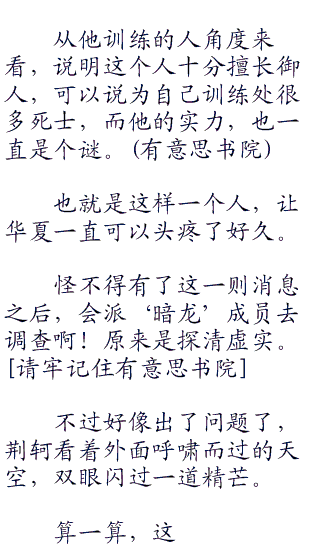 从他训练的人角度来
看，说明这个人十分擅长御
人，可以说为自己训练处很
多死士，而他的实力，也一
直是个谜。(有意思书院)
也就是这样一个人，让
华夏一直可以头疼了好久。
怪不得有了这一则消息
之后，会派‘暗龙’成员去
调查啊！原来是探清虚实。
[请牢记住有意思书院]
不过好像出了问题了，
荆轲看着外面呼啸而过的天
空，双眼闪过一道精芒。
算一算，这